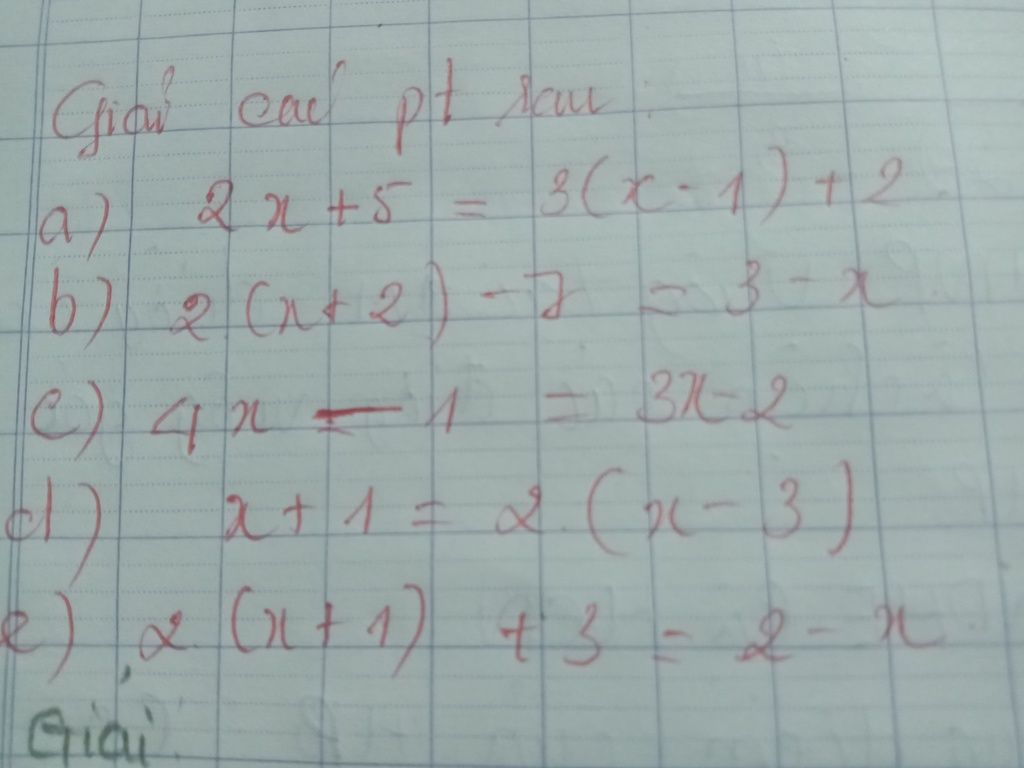 Giải các pt sau :
a) 2x + 5 = 3(x - 1) + 2
b) 2(x + 2) - 7 = 3 - x
c) 4x - 1 = 3x - 2
d) x + 1 = 2.(x - 3)
e) 2(x + 1) + 3 = 2 - x
Giải